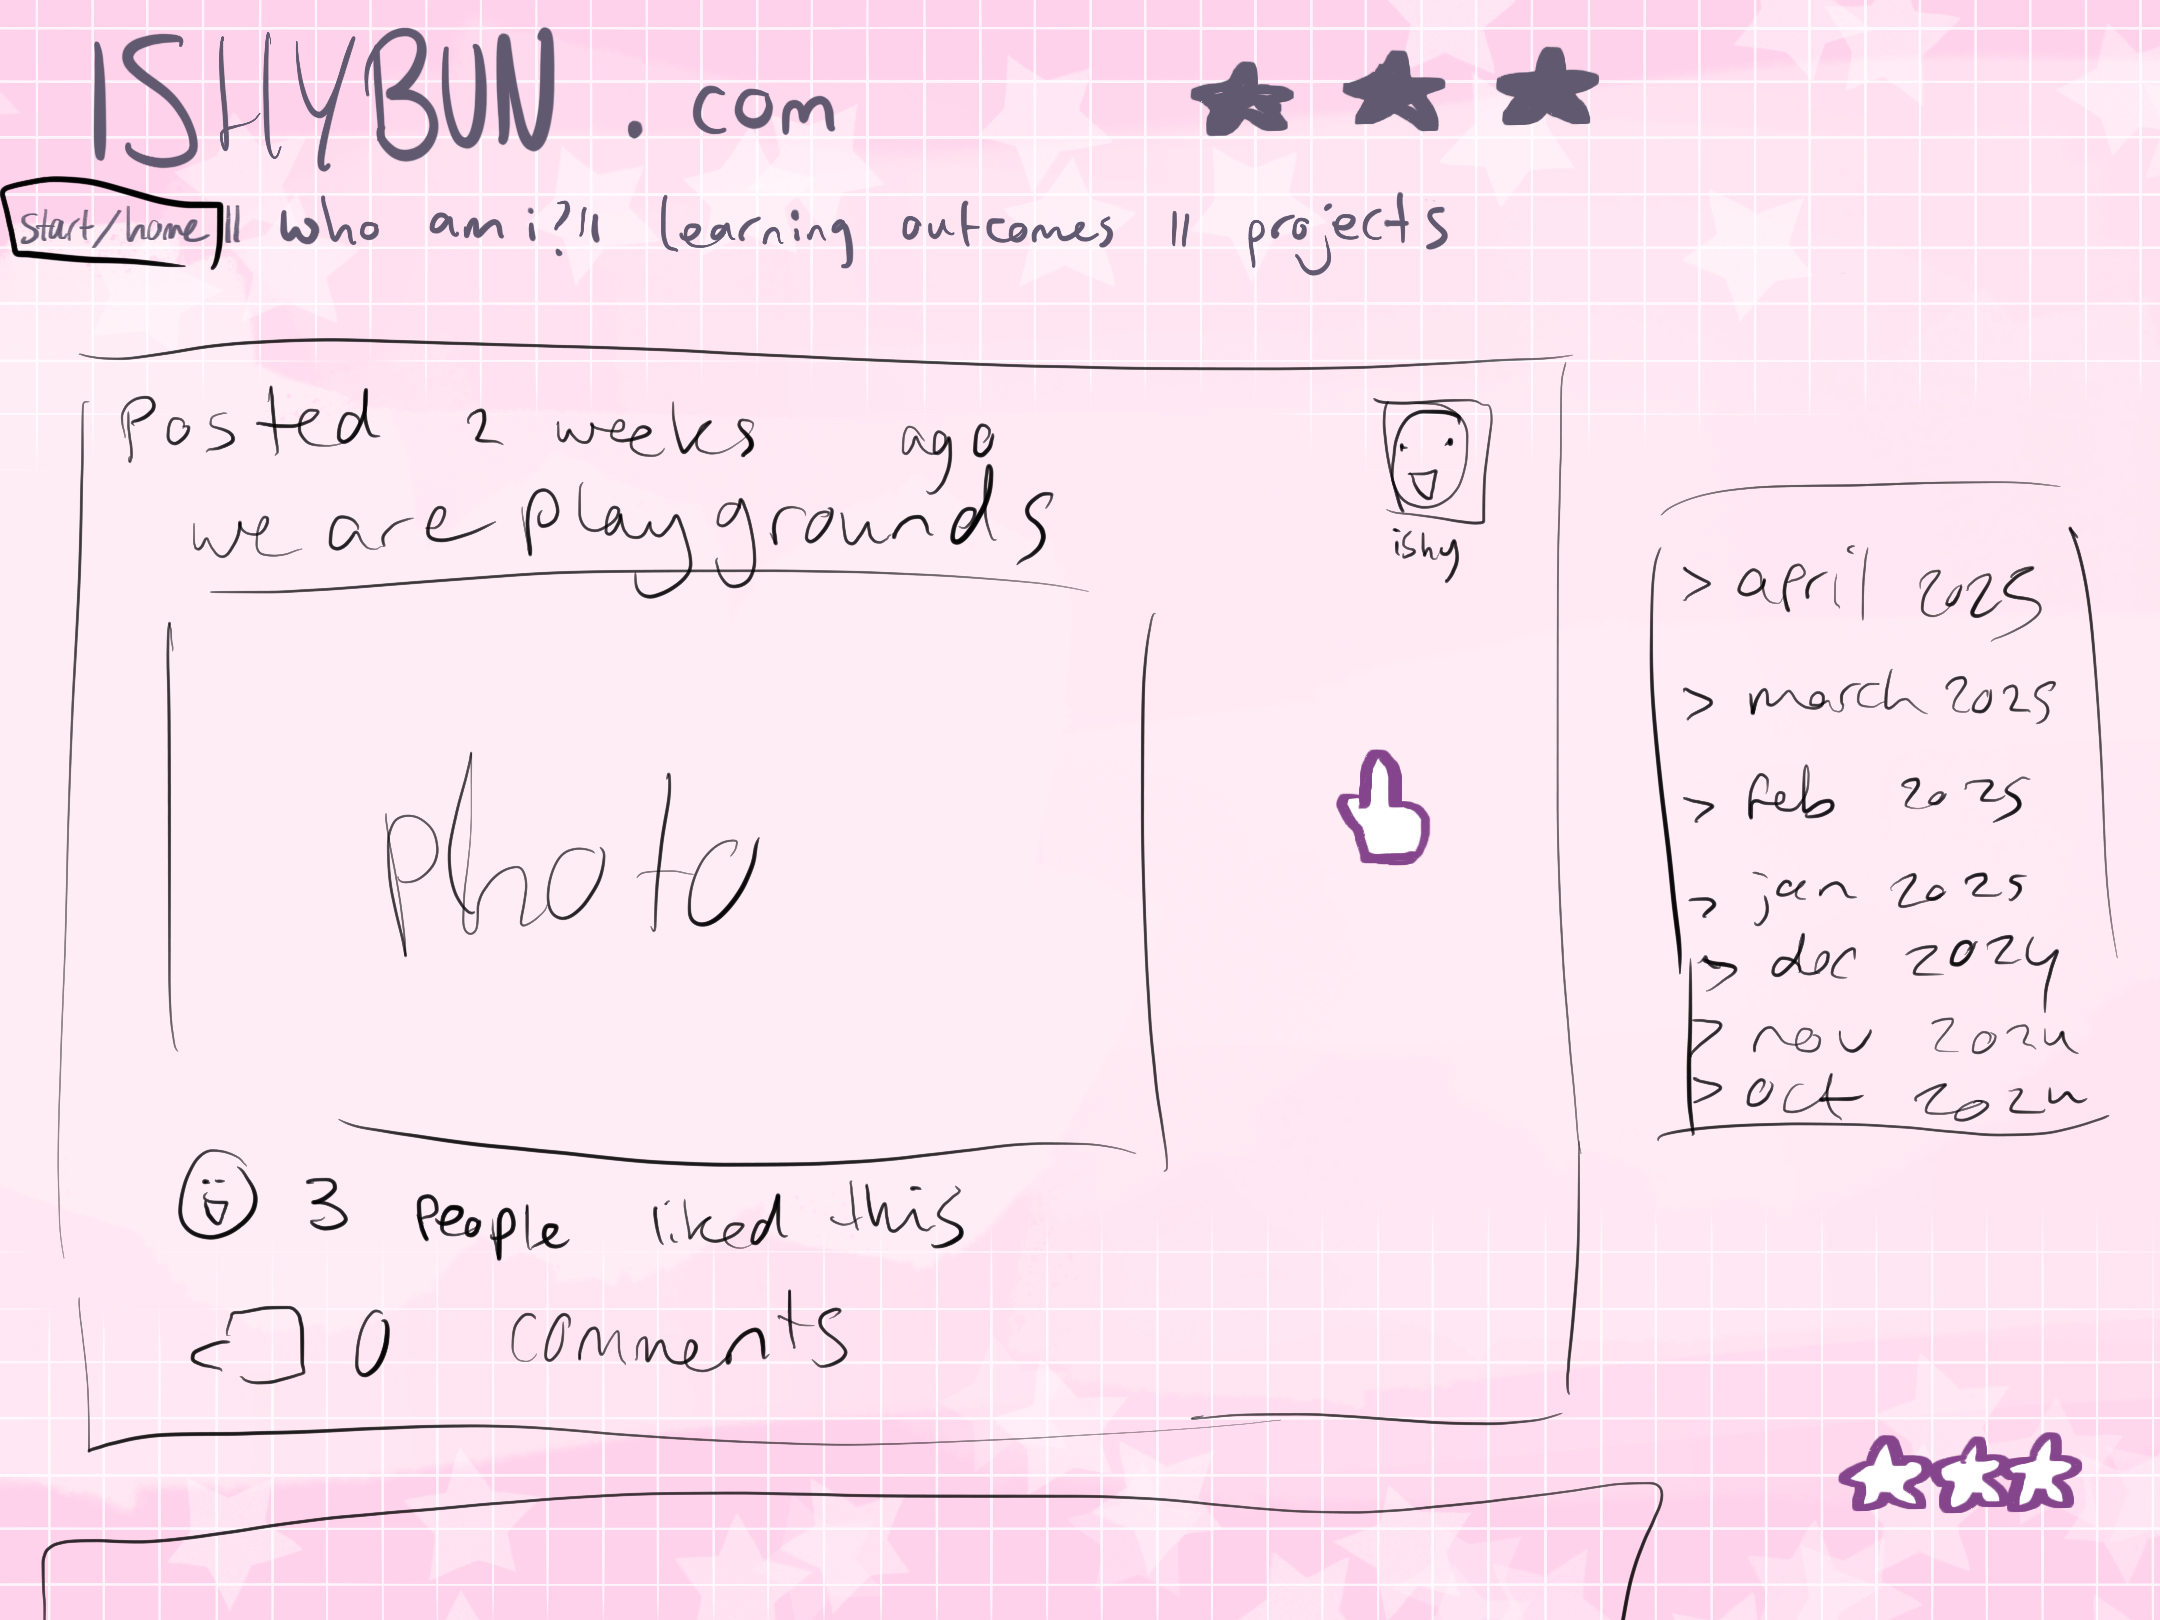 ISHYBUN.com
start/home || who am i? || learning outcomes || projects
Posted 2 weeks ago
we are playgrounds
ishy
photo
3 people liked this
0 comments
> april 2025
> march 2025
> feb 2025
> jan 2025
> dec 2024
> nov 2024
> oct 2024